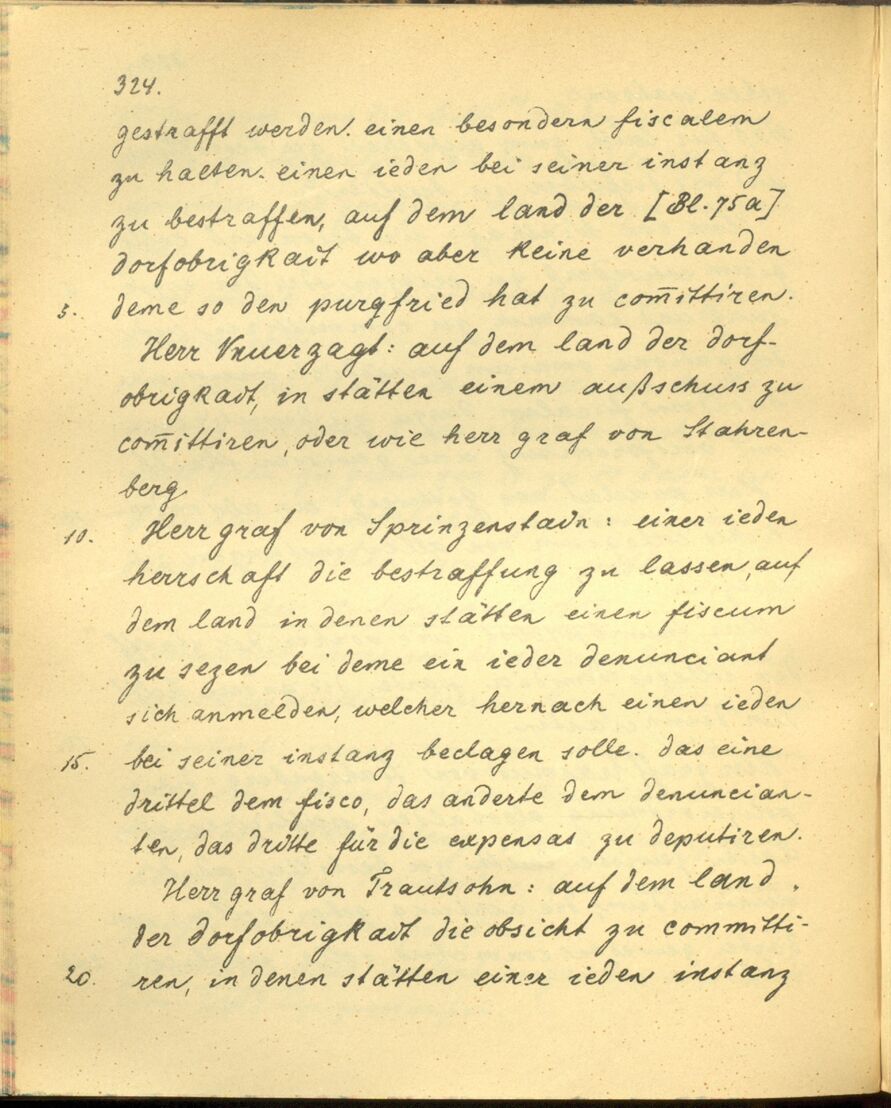 324.
gestrafft werden. einen besondern fiscalem
zu halten. einen ieden bei seiner instanz
zu bestraffen, auf dem land der [Bl. 75a]
dorfobrigkait wo aber keine verhanden
5. deme so den purgfried hat zu com̄ittiren.
Herr Vnuerzagt: auf dem land der dorf-
obrigkait, in stätten einem außschuss zu
com̄ittiren, oder wie herr graf von Stahren-
berg
10. Herr graf von Sprinzenstain: einer ieden
herrschaft die bestraffung zu lassen, auf
dem land in denen stätten einen fiscum
zu sezen bei deme ein ieder denunciant
sich anmelden, welcher hernach einen ieden
15. bei seiner instanz beclagen solle. das eine
drittel dem fisco, das anderte dem denuncian-
ten, das dritte für die expensas zu deputiren.
Herr graf von Trautsohn: auf dem land
der dorfobrigkait die obsicht zu committi-
20. ren, in denen stätten einer ieden instanz